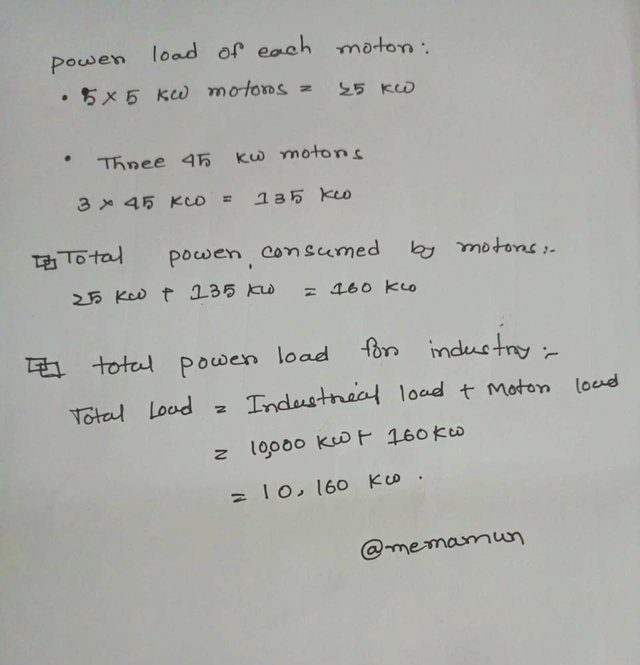 power load of each motor:
• 5 x 5 kw motors = 25 kw
• Three 45 kw motors
3 x 45 kw = 135 kw
Total power consumed by motors:-
25 kw + 135 kw = 160 kw
total power load for industry :-
Total Load = Industrial load + Motor load
= 10,000 kw + 160 kw
= 10,160 kw.
@memamun